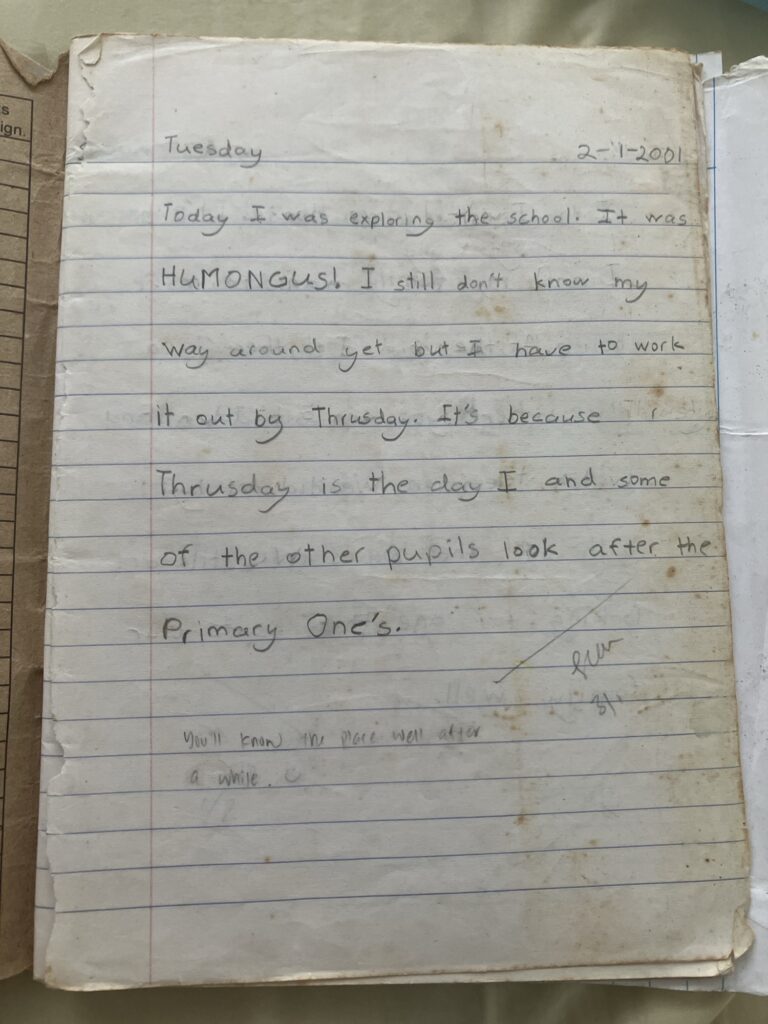 s
ign.
Tuesday 2-1-2001
Today I was exploring the school. It was
HUMONGUS! I still don't know my
way around yet but I have to work
it out by Thrusday. It's because
Thrusday is the day I and some
of the other pupils look after the
Primary One's.
3/1
You'll know the place well after
a while.